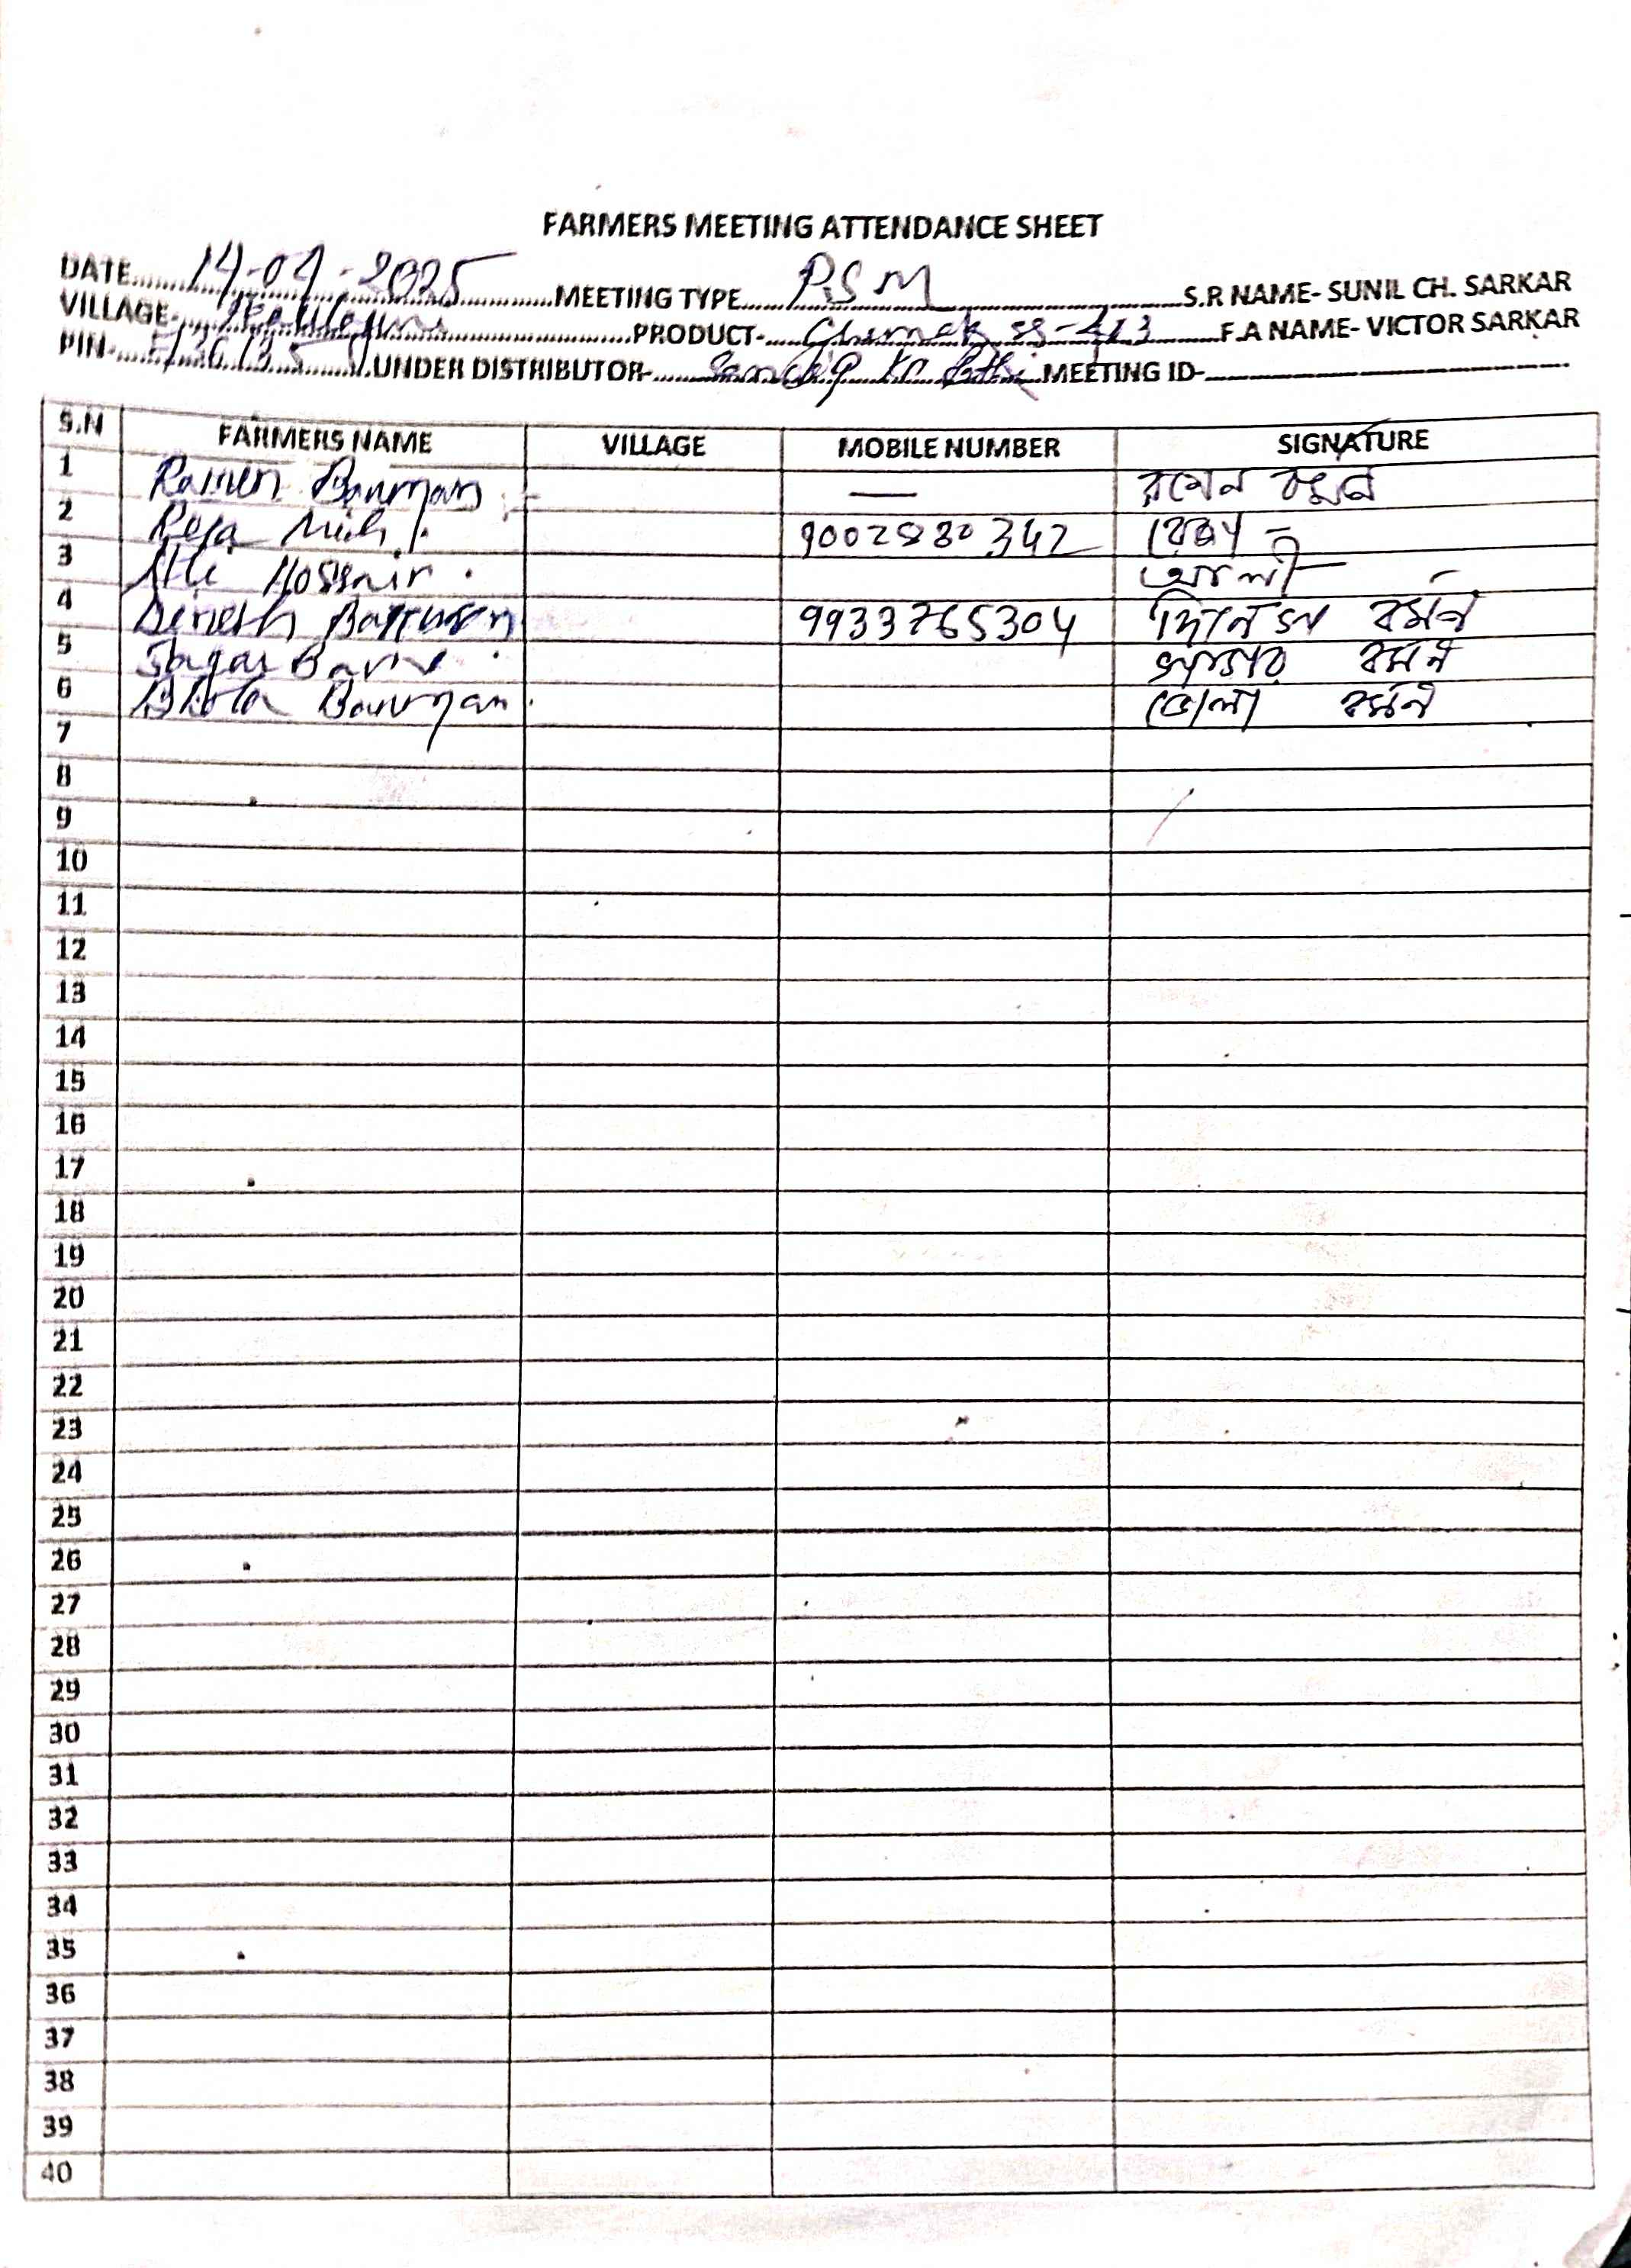 FARMERS MEETING ATTENDANCE SHEET
DATE 14-04-2025 MEETING TYPE PSM S.R NAME- SUNIL CH. SARKAR
VILLAGE- PRODUCT- Chamak SS-413 F.A NAME- VICTOR SARKAR
PIN- 736135 UNDER DISTRIBUTOR- Sandip Kr MEETING ID-
S.N FARMERS NAME VILLAGE MOBILE NUMBER SIGNATURE
1 Ramen Barman — রমেন বর্মন
2 9002880342
3 Ali Hossain. আলী
4 Dinesh Barman 9933765304 দিনেশ বর্মন
5 Sagar বর্মন
6 Bhola Barman. ভোলা বর্মন
7
8
9
10
11
12
13
14
15
16
17
18
19
20
21
22
23
24
25
26
27
28
29
30
31
32
33
34
35
36
37
38
39
40